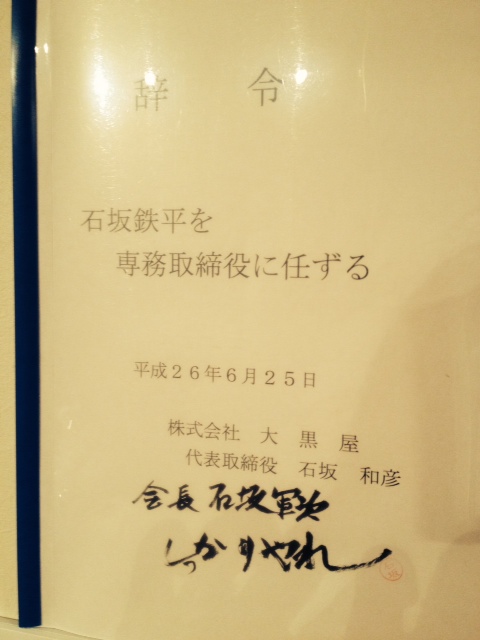 辞 令
石坂鉄平を
専務取締役に任ずる
平成２６年６月２５日
株式会社 大 黒 屋
代表取締役 石坂 和彦
会長 石坂軍治
しっかりやれ